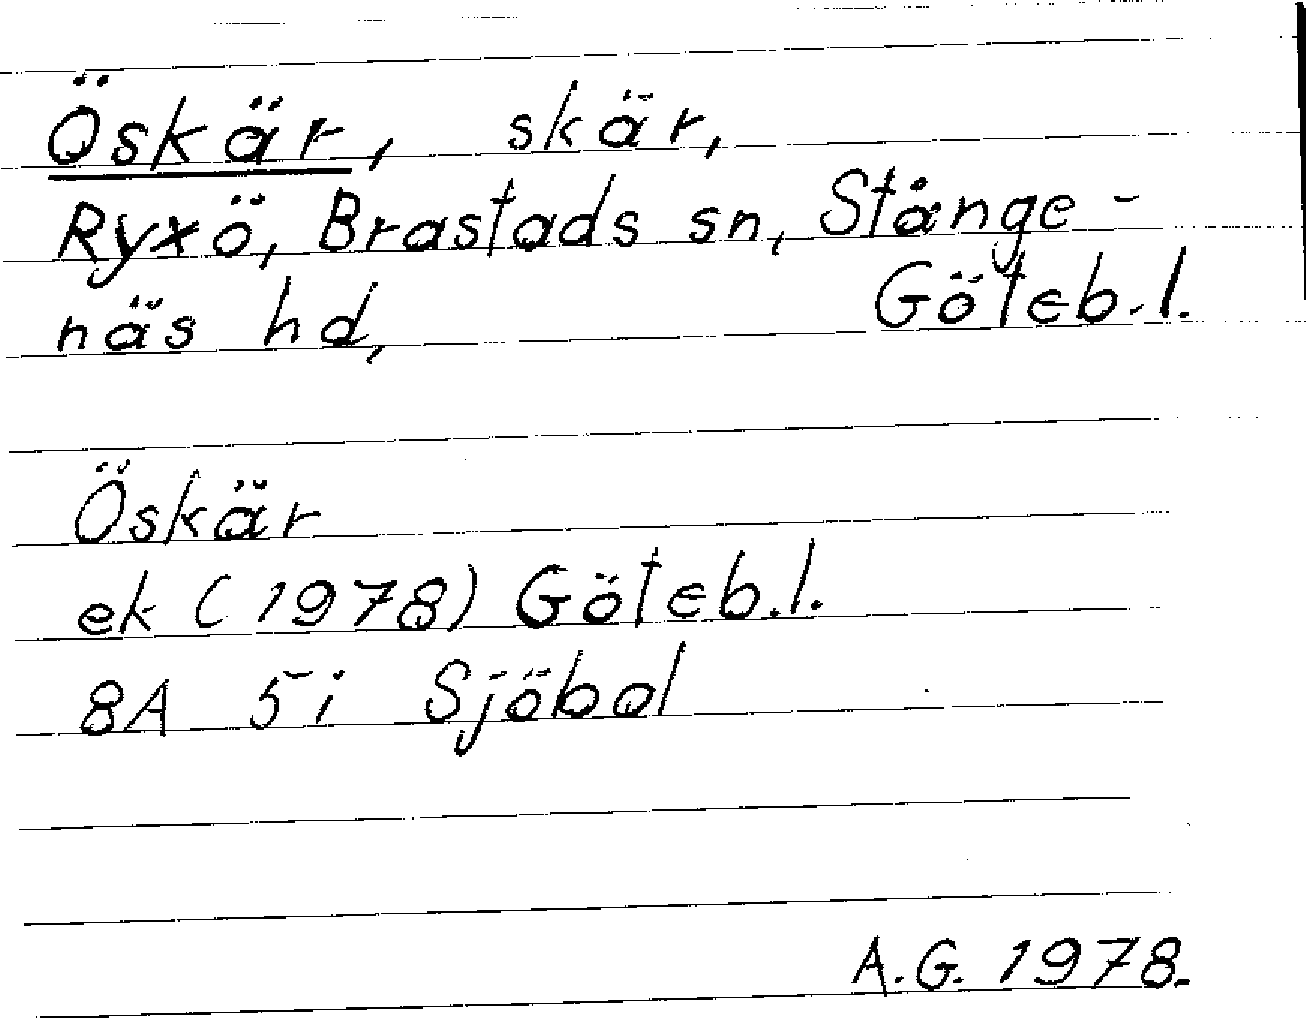 Öskär, skär,
Ryxö, Brastads sn, Stånge-
näs hd, Göteb.l.
Öskär
ek (1978) Göteb.l.
8A 5i Sjöbol
A.G. 1978.